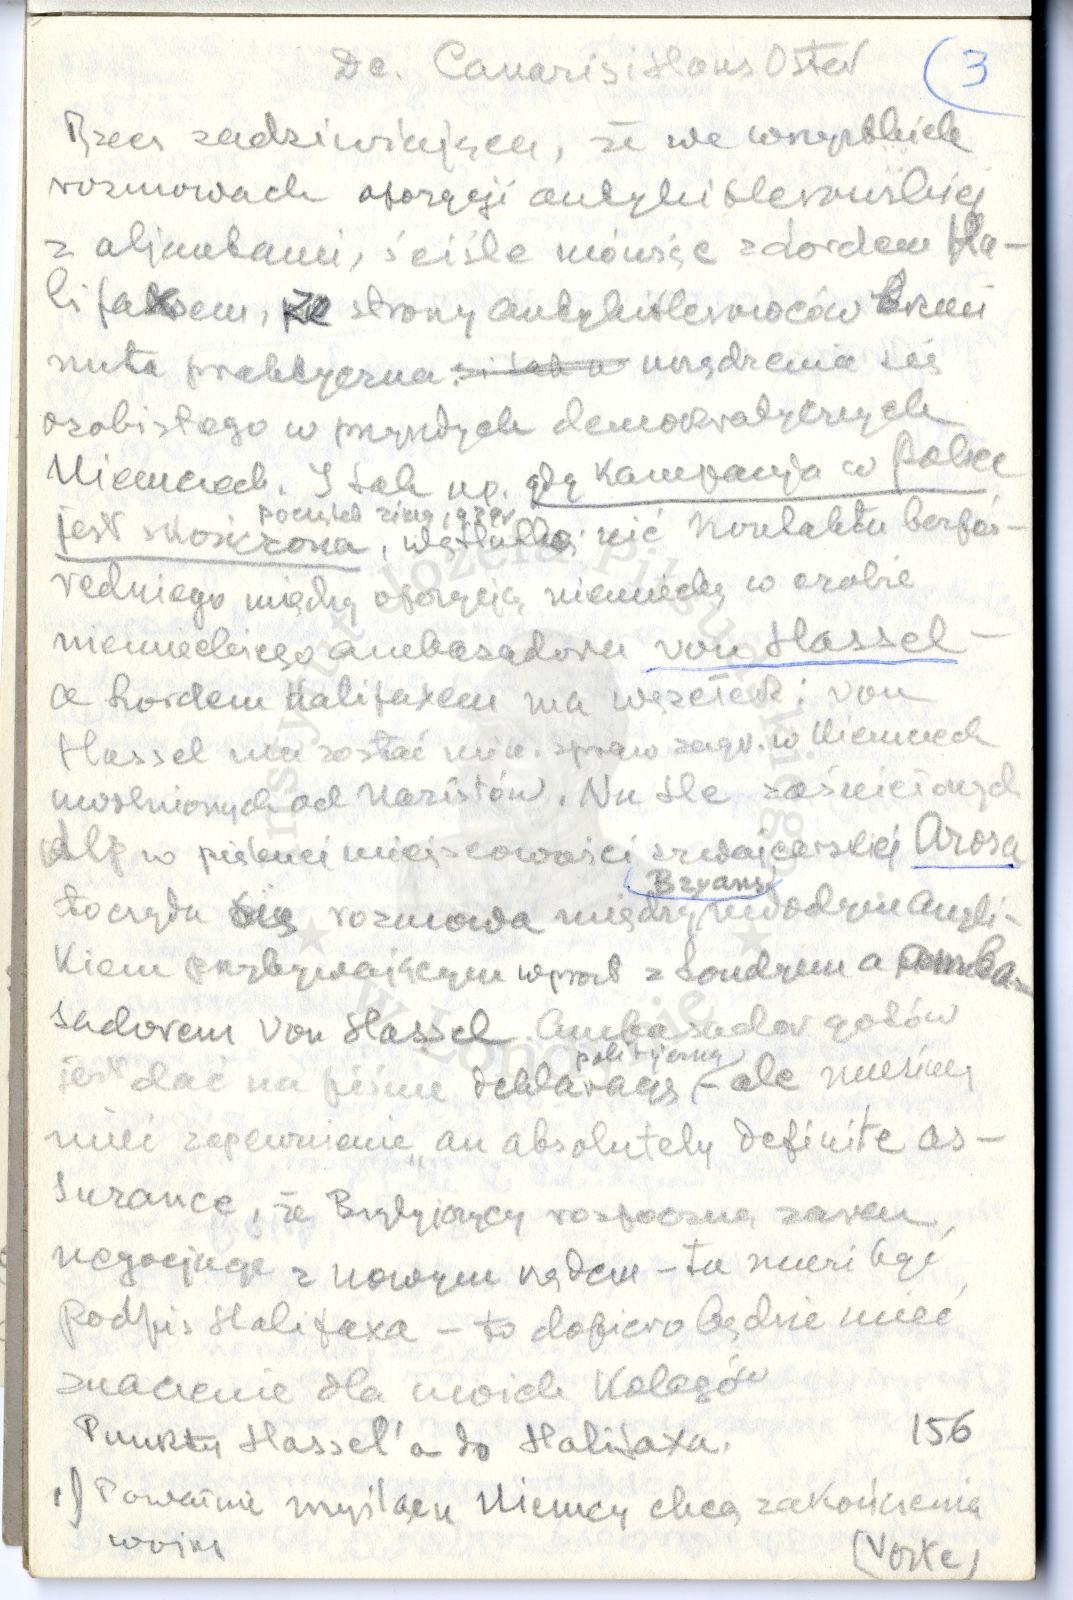 Dc. Canaris i Hans Oster
3
Rzecz zadziwiająca, że we wszystkich
rozmowach opozycji antyhitlerowskiej
z aljantami, ściśle mówiąc z Lordem Ha-
lifaxem, ze strony antyhitlerowców brzmi
nuta praktyczna urządzenia się
osobistego w przyszłych demokratycznych
Niemczech. I tak np. gdy Kampanja w Polsce
jest skończona, początek zimy 1939 r
wątlutka nić kontaktu bezpoś-
redniego między opozycją niemiecką w osobie
niemieckiego ambasadora von Hassel -
a Lordem Halifaxem ma węzełek: von
Hassel ma zostać min. spraw zagr. w Niemczech
uwolnionych od Nazistów. Na tle zaśnieżonych
Alp w pięknej miejscowości szwajcarskiej Arosa
Bryans
toczyła się rozmowa między młodym Angli-
kiem przybywającym wprost z Londynu a amba-
sadorem von Hassel. Ambasador gotów
polityczną
jest dać na piśmie deklarację - ale muszą
mieć zapewnienie „an absolutely definite as-
surance, że Brytyjczycy rozpoczną zaraz
negocjacje z nowym rządem - tu musi być
podpis Halifaxa - to dopiero będzie mieć
znaczenie dla moich Kolegów
Punkty Hassel'a do Halifaxa. 156
1) Poważnie myślący Niemcy chcą zakończenia
wojny
Instytut Józefa Piłsudskiego
w Londynie